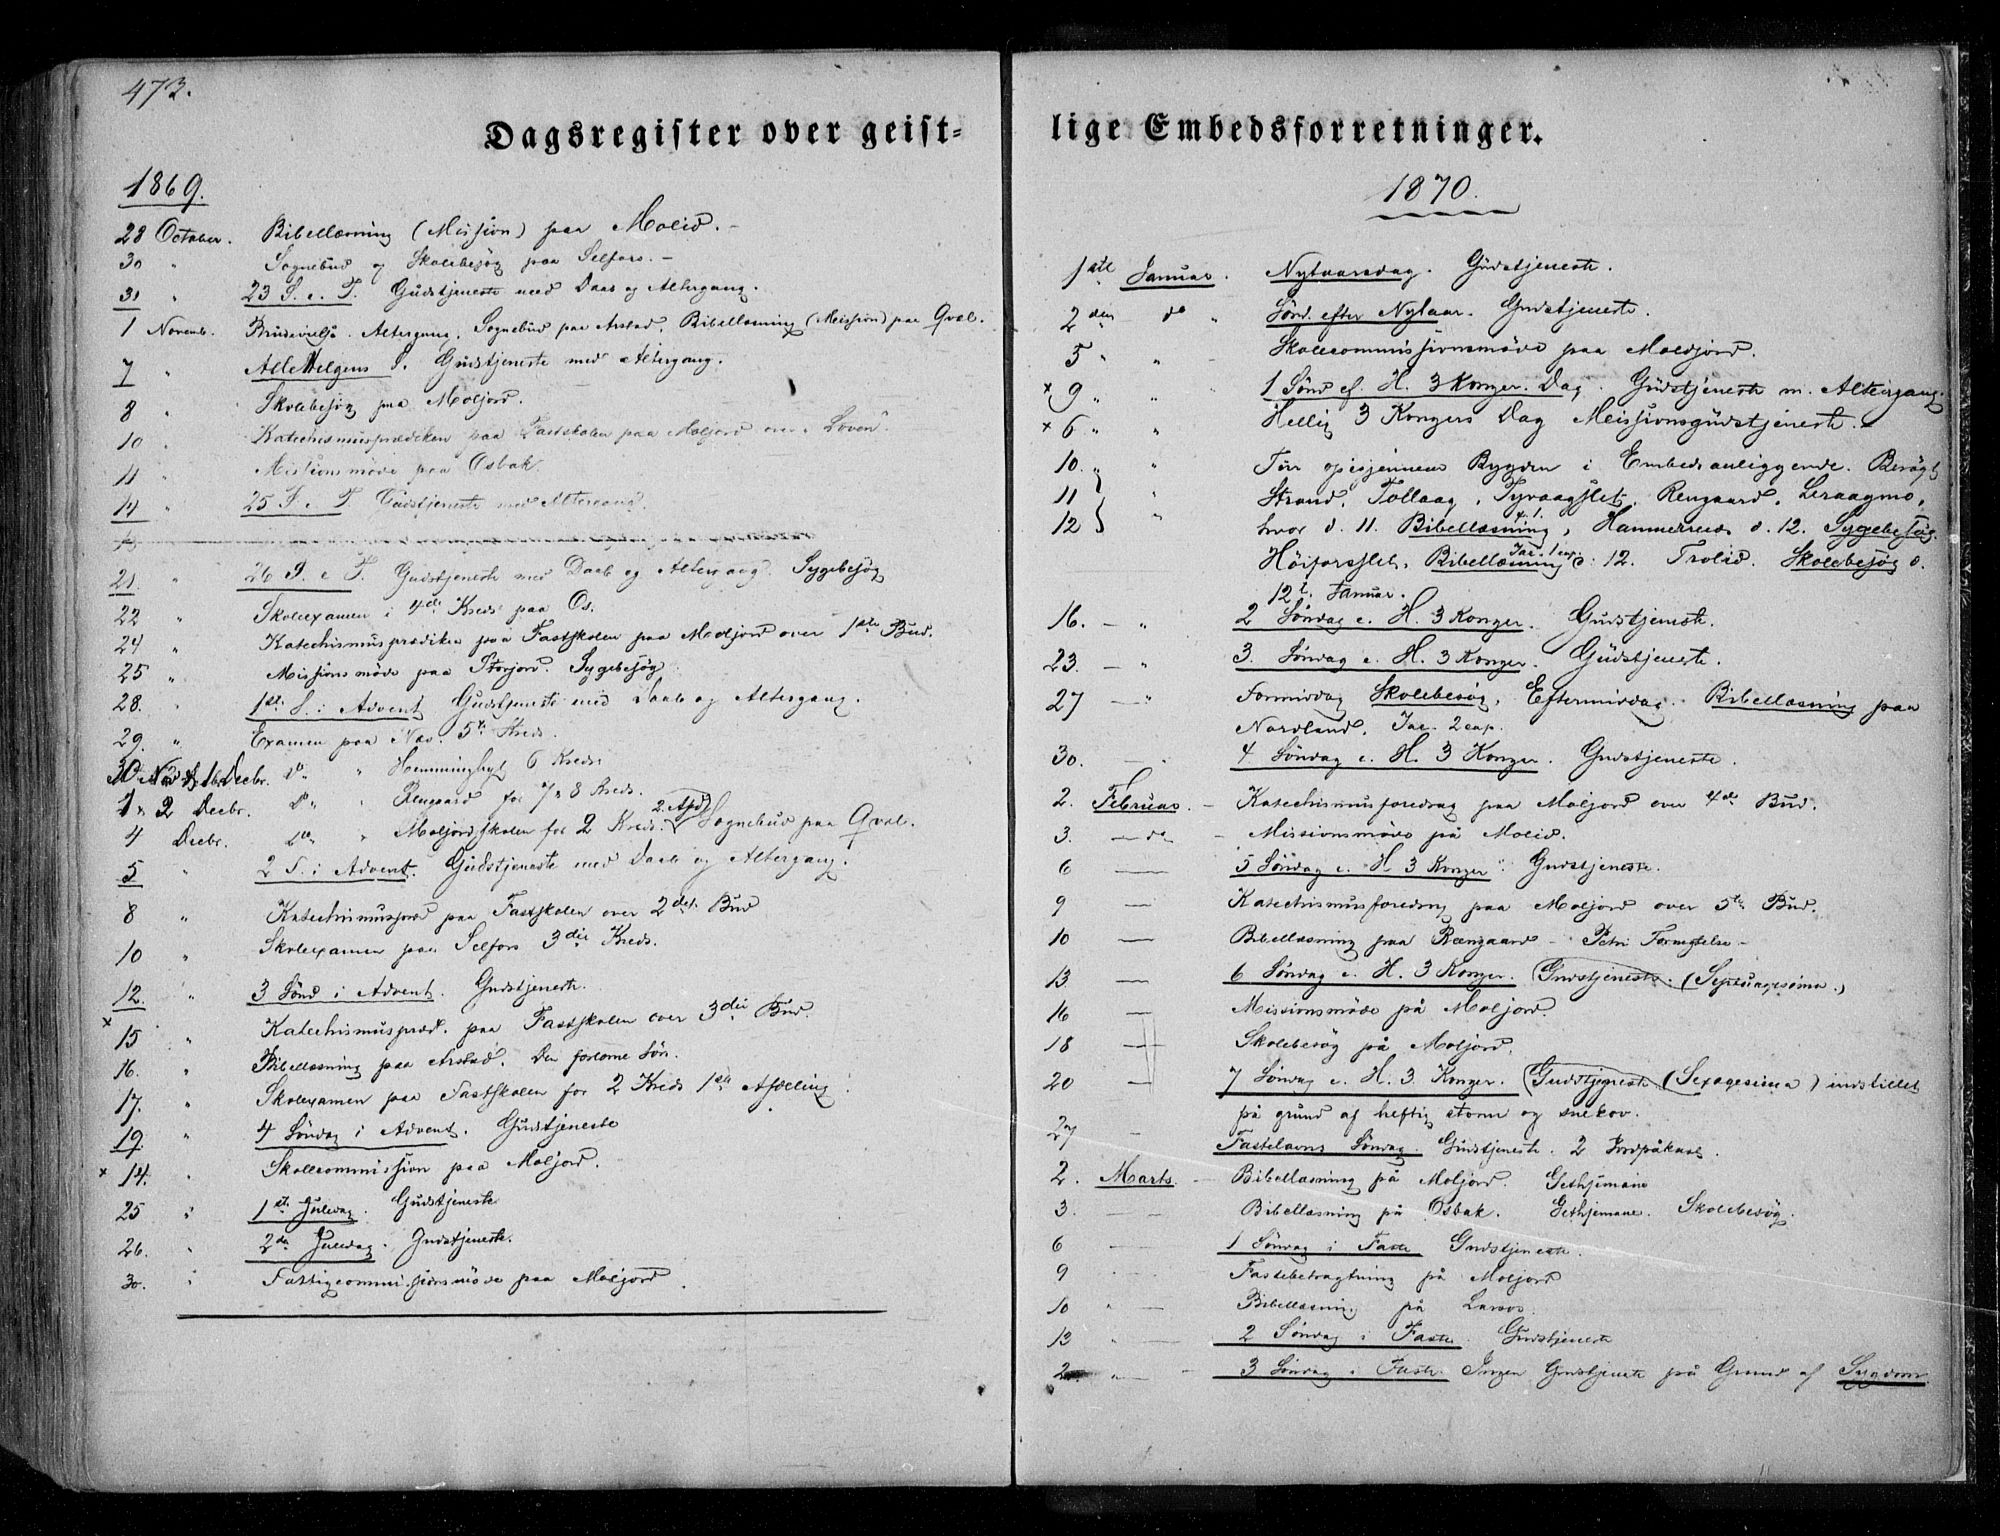 473.
Dagsregister over geist-
1869.
28 October. Bibellæsning (Mission) paa Molid. -
30 " Sognebud og Skolebesøg paa Selfors. -
31 " 23 S. e. T. Gudstjeneste med Daab og Altergang.
1 Novemb. Brudevielse. Altergang. Sognebud paa Arstad. Bibellæsning (Mission) paa Qval.
7 " Alle Helgens S. Gudstjeneste med Altergang.
8 " Skolebesøg paa Moljord.
10 " Katechismusprædiken paa Fastskolen paa Moljord over Loven.
11 " Missionsmøde paa Osbak.
14 " 25 S. e. T. Gudstjeneste med Altergang.
21 " 26 S. e. T. Gudstjeneste med Daab og Altergang. Sygebesøg
22 " Skolexamen i 4de Kreds paa Os.
24 " Katechismusprædiken paa Fastskolen paa Moljord over 1ste Bud.
25 " Missionsmøde paa Storjord. Sygebesøg
28. " 1ste S. i Advent Gudstjeneste med Daab og Altergang.
29. " Examen paa Næs. 5te Kreds.
30 Nov & 1 Decbr. Do " Hemminghyt 6 Kreds.
1 & 2 Decbr. Do " " Rengaard for 7 & 8 Kreds.
4 Decbr. Do " Moljordskolen for 2 Kreds. 2. Afd. Sognebud paa Qval.
5 " 2 S. i Advent. Gudstjeneste med Daab og Altergang.
8 " Katechismusford. paa Fastskolen over 2det Bud
10 " Skolexamen paa Selfors 3die Kreds.
12. " 3 Sønd i Advent. Gudstjeneste.
x 15 " Katechismuspræd. paa Fastskolen over 3die Bud.
16. " Bibellæsning paa Arstad. Den forlorne Søn.
17. " Skolexamen paa Fastskolen for 2 Kreds 1ste Afdeling.
19. " 4 Søndag i Advent. Gudstjeneste
x 14. " Skolecommission paa Moljord.
25 " 1ste Juledag. Gudstjeneste
26. " 2den Juledag. Gudstjeneste.
30. " Fattigcommissionsmøde paa Moljord.
lige Embedsforretninger.
1870.
1ste Januar. Nytaarsdag. Gudstjeneste.
2den do " Sønd. efter Nytaar. Gudstjeneste.
5 " " - Skolecommissionsmøde paa Moldjord.
x 9 " " 1 Sønd ef. H. 3 Konger. Dag. Gudstjeneste m. Altergang.
x 6 " " Hellig 3 Kongers Dag Missionsgudstjeneste. -
10. " " Tur opigjennem Bygden i Embedsanliggende. Besøgt
11 " Strand, Tollaag, Tyvaagslet, Rengaard, Leraagmo,
12 " hvor d. 11. Bibellæsning, Hammernes d. 12. Sygebesøg.
Høiforsslet. Bibellæsning Jac. 1 cap. d. 12. Trolid. Skolebesøg d.
12t. Januar.
16. - " 2 Søndag e. H. 3 Konger. Gudstjeneste.
23. - " 3. Søndag e. H. 3 Konger. Gudstjeneste.
27 - " Formiddag Skolebesøg, Eftermiddag. Bibellæsning paa
Nordland. Jac. 2 cap.
30. - " 4 Søndag e. H. 3 Konger. Gudstjeneste.
2. Februar. - Katechismusforedrag paa Moljord over 4de Bud.
3. - do - Missionsmøde på Molid.
6 - 5 Søndag e. H 3 Konger. Gudstjeneste.
9 - Katechismusforedrag paa Moljord over 5te Bud.
10 - Bibellæsning paa Rængaard - Petri Fornegtelse -
13 - 6 Søndag e. H. 3 Konger. Gudstjeneste. (Septuagesima.)
16 - Missionsmøde på Moljord.
18 - Skolebesøg på Moljord.
20 - 7 Søndag e. H. 3. Konger. Gudstjeneste (Sexagesima) indstillet
på grund af heftig storm og snekov.
27 - Fastelavns Søndag. Gudstjeneste. 2 Jordpåkast.
2. Marts. - Bibellæsning på Moljord. Gethsemane
3. - Bibellæsning på Osbak. Gethsemane. Skolebesøg.
6 - 1 Søndag i Faste Gudstjeneste.
9 - Fastebetragtning på Moljord
10 " - Bibellæsning på
13 " - 2 Søndag i Faste. Gudstjeneste
" - 3 Søndag i Faste. Ingen Gudstjeneste på Grund af Sygdom.